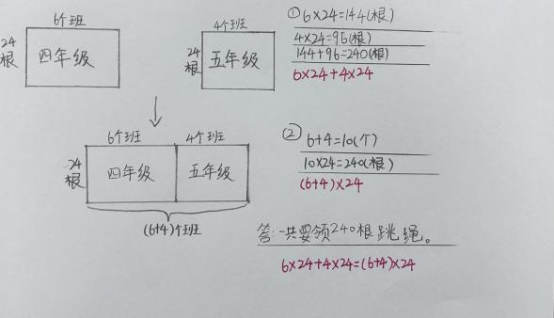 6个班
24根
四年级
4个班
24根
五年级
6个班
4个班
24根
四年级
五年级
(6+4)个班
①6×24=144(根)
4×24=96(根)
144+96=240(根)
6×24+4×24
②6+4=10(个)
10×24=240(根)
(6+4)×24
答:一共要领240根跳绳。
6×24+4×24=(6+4)×24